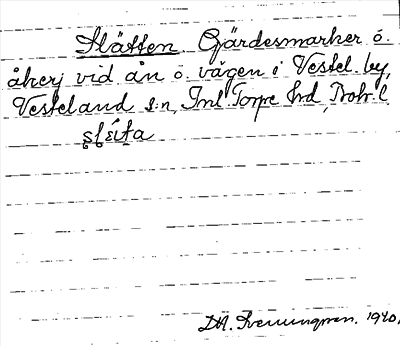 Slätten. Gärdesmarker ö.
åkerj vid ån o. vägen i Vestel. by,
Vesteland s:n, Inl Torpe hrd, Boh. l.
slæ̂ta
D.A. Svenungsson. 1940.